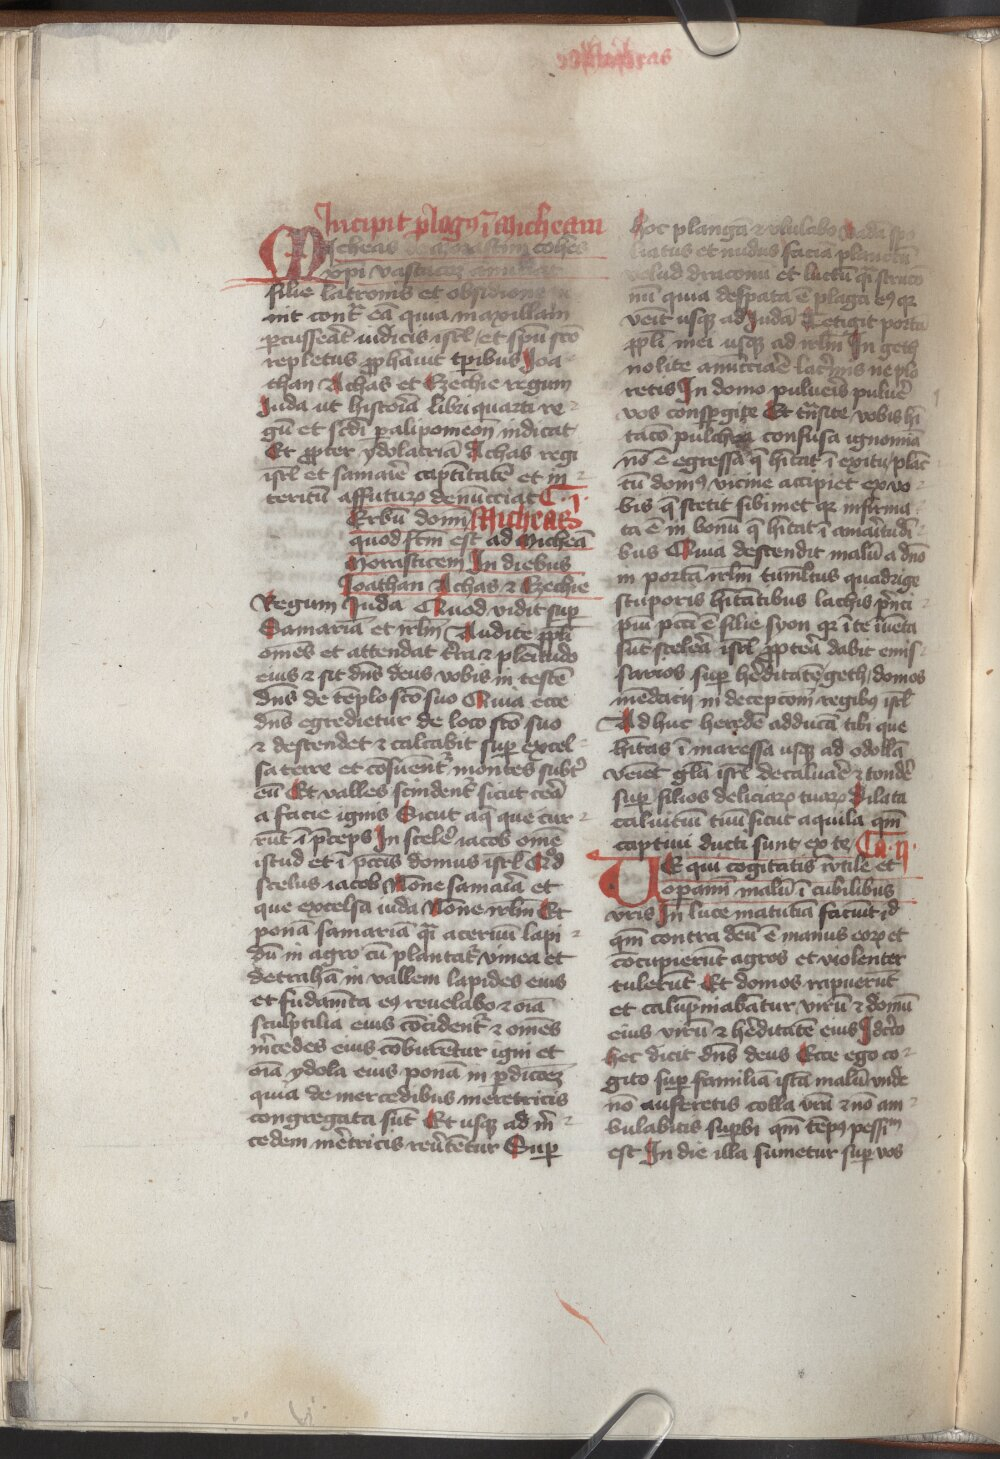 Micheas
Incipit plogus ī Micheam
Micheas de morastim cohes
xpi vastacōꝫ annūciat
filie latronis et obsidionē
nit contᷓ eā quia maxillam
ꝑcusseāt iudicis isrl̄ / et spū scō
repletus ꝓphauit tꝑibus Joa
than Achas et Ezechie regum
Juda ut historia libri quarti re
gū et scd̄i ꝑalipomeon̄ indicat
Et ꝓpter ydolatriā Achas regi
isrl̄ et samaīe captītatē et in
teritū affuturꝫ denūcciat C· ī·
Erbū domī Micheas
quod fc̄m est ad Micheā
Morasticem In diebus
Joathan Achas ⁊ Ezechie
Regum Juda Quod vidit suꝑ
Samariā et irlm̄ Audite ppl̄i
om̄es et attendat t̄ra ⁊ plēitudo
eius ⁊ sit dn̄s deus vobis in testē
dn̄s de tēplo scō suo Quia ecce
dn̄s egredietur de loco scō suo
⁊ descendet ⁊ calcabit suꝑ excel
sa terre et cōsuent̄ montes subt᷑
eū Et valles scindent̄ sicut cera
a facie ignis Sicut aq̄ que cur
rūt ī p̄ceps In scele᷑ iacob om̄e
istud et ī pccīs domus isrl̄ Qd̄
scelus iacob None samaīa et
que excelsa iuda None irlm̄ Et
ponā samariā qͣ acervū lapi
dū in agro cū plantat᷑ vinea et
detrahā in vallem lapides eius
et fūdam̄ta eꝰ reuelabo ⁊ oīa
sculptilia eius cōcident̄ ⁊ om̄es
m̄cedes eius cōburentur igni et
oīa ydola eius ponā in ꝑdicōeꝫ
quia de mercedibus meretricis
congregata sūt Et usqꝫ ad m̄
cedem me᷑tricis reu᷑tētur Suꝑ
hoc plangā ⁊ vlulabo vadā spo
liatus et nudus faciā planctū
velud draconū et luctū qͣ struco
nū quia despata ē plaga eꝰ qꝛ
veīt usqꝫ ad Judā Tetigit portā
ppl̄i mei usqꝫ ad irlm̄ In geth
nolite anūcciaē lac᷑mis ne plo
retis In domo pulueris pulue᷑
vos consꝑgite Et tn̄site vobis hī
tacō pulchra confusa ignomīa
nō ē egressa q̄ hītat ī exitu / plāc
tū domꝰ vicine accipiet ex vo
bis q̄ stetit sibimet qꝛ infirma
ta ē in bonū q̄ hītat ī amaītudī
bus Quia descendit malū a dn̄o
in portā irlm̄ tumltus quadrige
stuporis hītātibus lachis p̄nci
piū pccī ē filie syon qꝛ ī te īuēta
sūt scelera isrl̄ ꝓpteā dabit emis
sarios suꝑ he᷑ditatē geth / domos
mēdacij in decepcom̄ regibꝰ isrl̄
Adhuc heredē adducā tibi que
hītas ī maressa usqꝫ ad odollā
veīet glā isrl̄ decaluaē ⁊ tondē
suꝑ filios deliciaꝝ tuaꝝ Dilata
caluitiū tuū sicut aquila qm̄
captiui ducti sunt ex te Ca· ij·
Ve qui cogitatis īvtile et
opamī malū ī cubilibus
vris In luce matutīa faciūt id
qm̄ contra deū ē manus eoꝝ et
cōcupierūt agros et violenter
tulerūt Et domos rapuerūt
et calūpniabātur virū ⁊ domū
eius virū ⁊ he᷑ditatē eius Idc̄co
hec dicit dn̄s deus Ecce ego co
gito suꝑ familiā istā malū vnde
nō auferetis colla vrā ⁊ nō am
bulabitis suꝑbi qm̄ tēpꝰ pessīm
est In die illa sumetur suꝑ vos